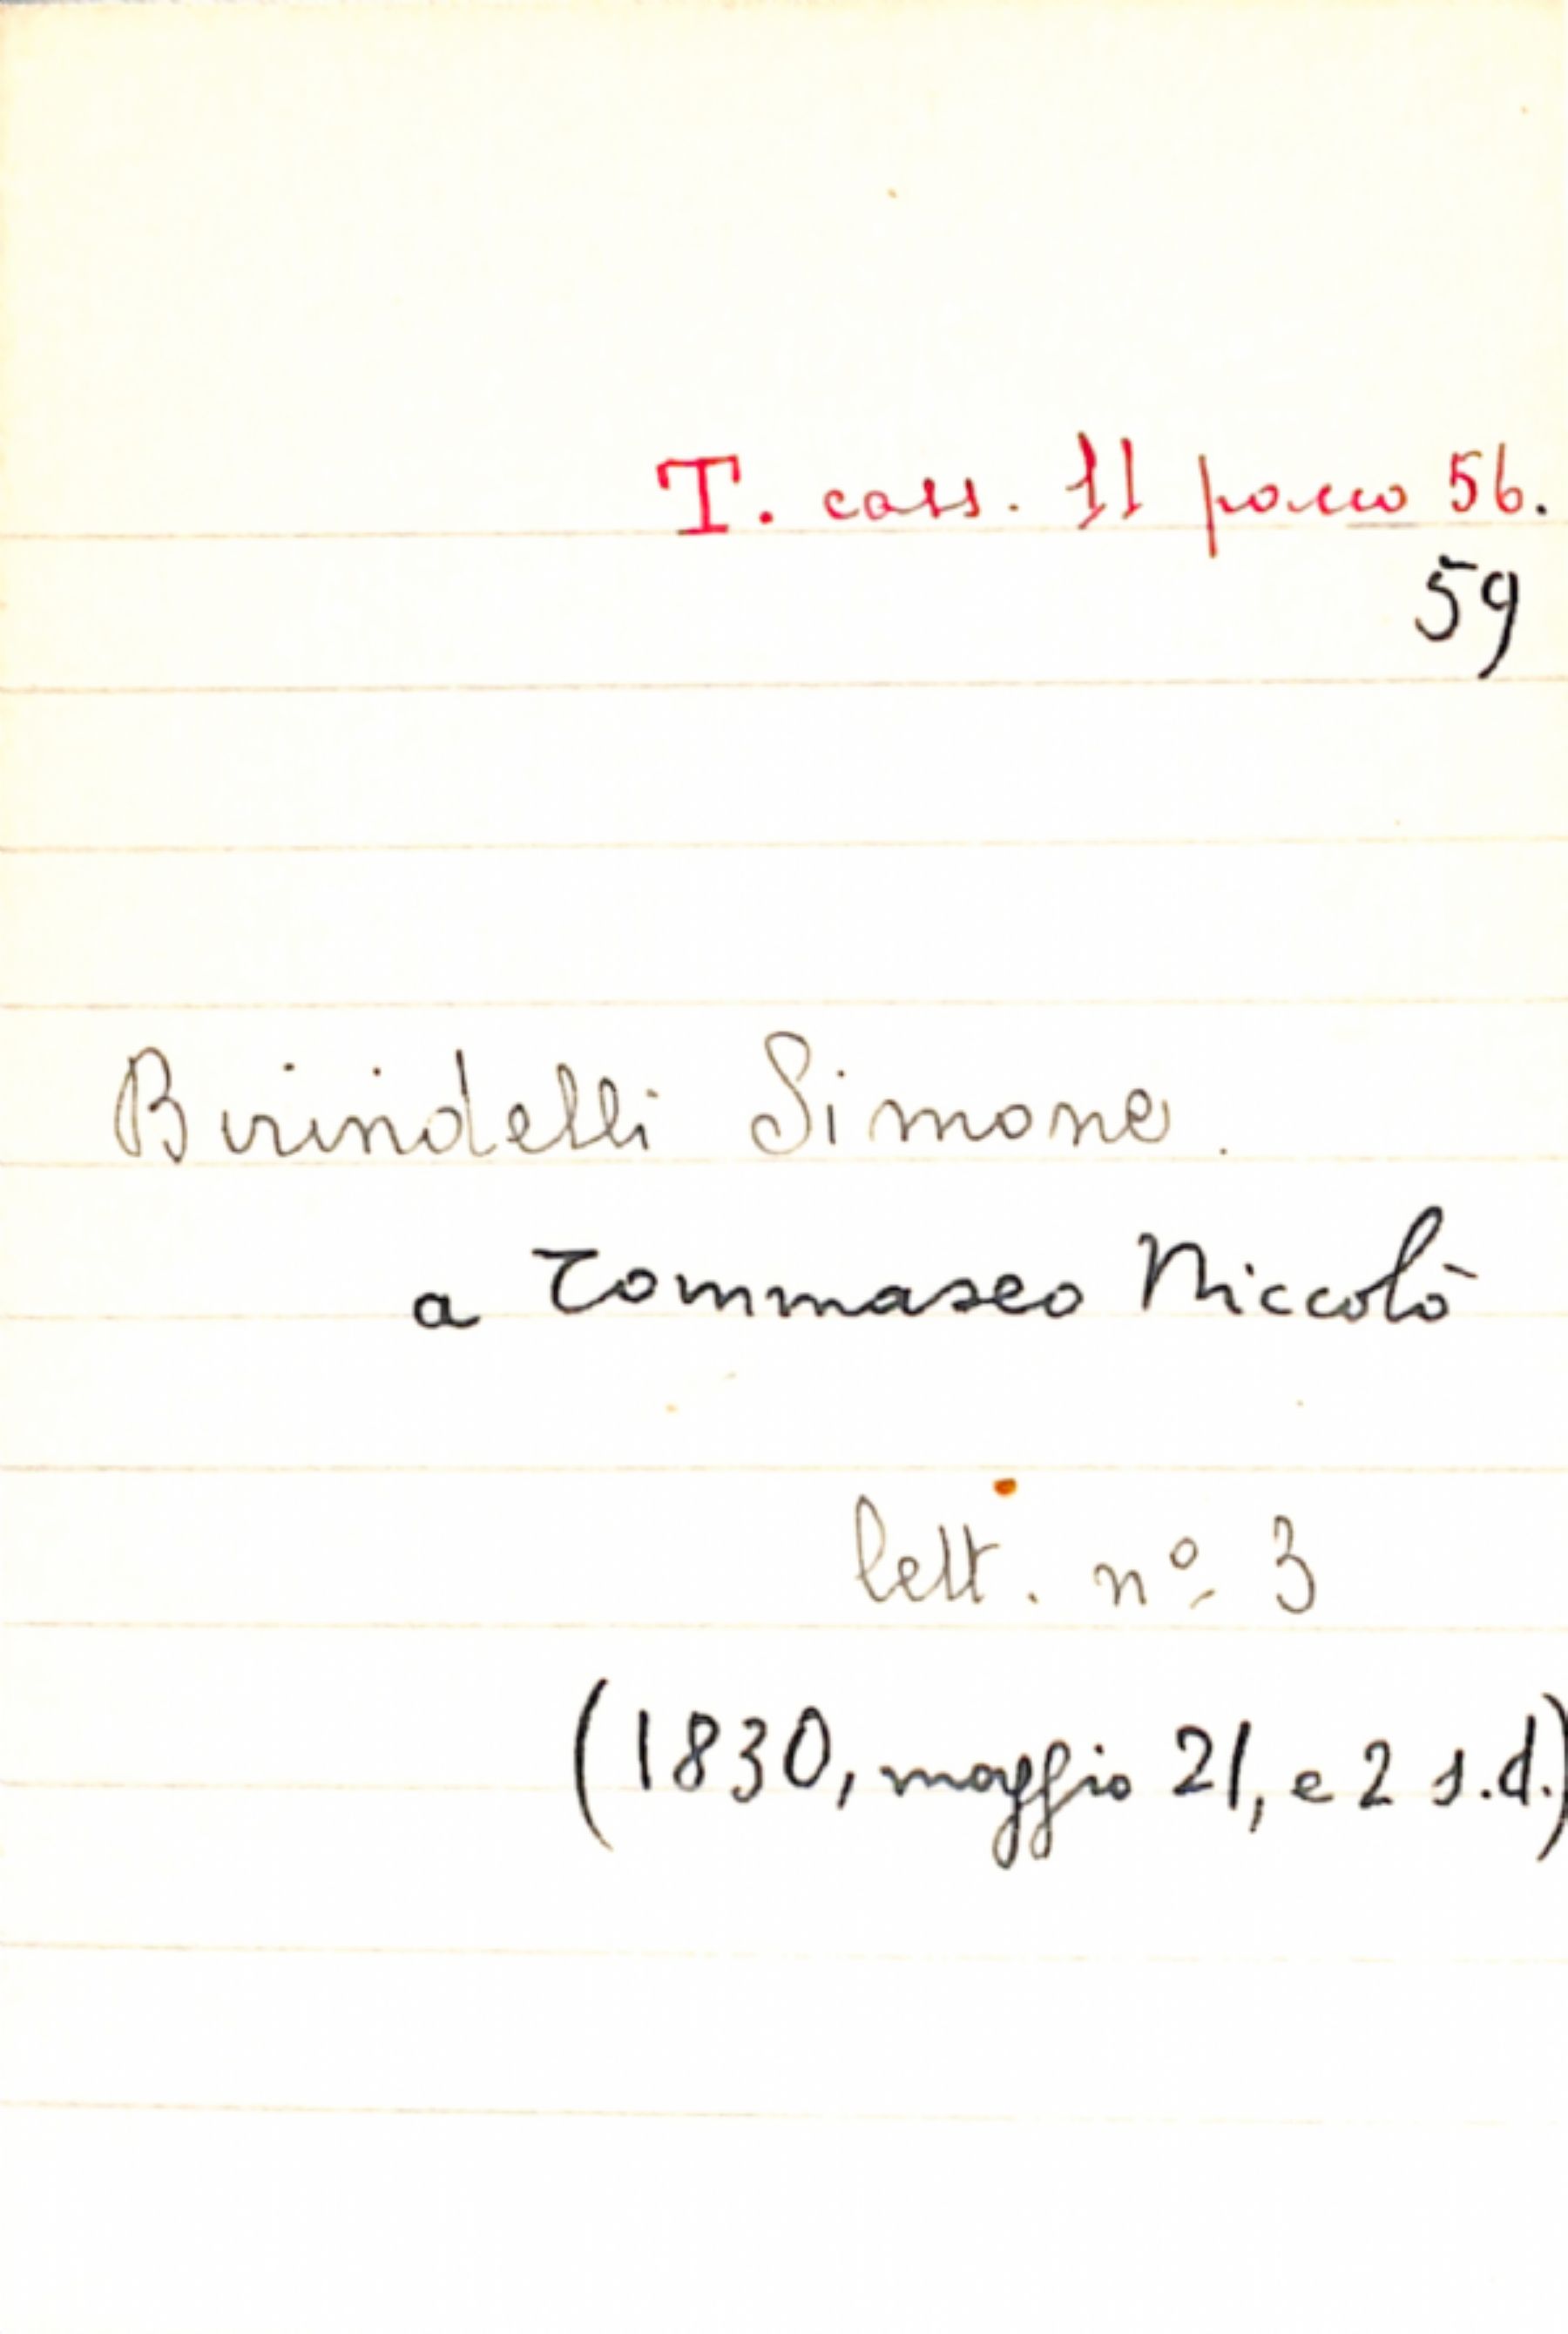 T. cass. 11 pacco 56.
59
Birindelli Simone.
a Tommaseo Niccolò
lett. nº 3
(1830, maggio 21, e 2 s.d.)